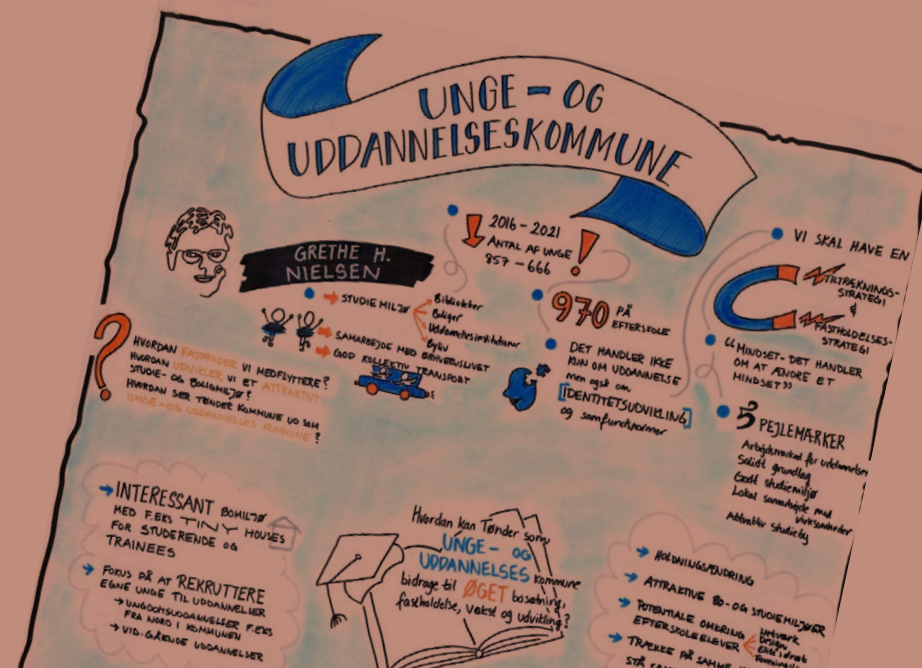 UNGE - OG
UDDANNELSESKOMMUNE
GRETHE H.
NIELSEN
2016 - 2021
ANTAL AF UNGE
857 - 666
!
970 PÅ
EFTERSKOLE
VI SKAL HAVE EN
TILTRÆKNINGS-
STRATEGI
&
FASTHOLDELSES-
STRATEGI
STUDIEMILJØ
Biblioteker
Boliger
Uddannelsesinstitutioner
Byliv
SAMARBEJDE MED ERHVERVSLIVET
GOD KOLLEKTIV TRANSPORT
?
HVORDAN FASTHOLDER VI MEDFLYTTERE?
HVORDAN UDVIKLER VI ET ATTRAKTIVT
STUDIE- OG BOLIGMILJØ?
HVORDAN SER TØNDER KOMMUNE UD SOM
UNGE-OG UDDANNELSES KOMMUNE?
DET HANDLER IKKE
KUN OM UDDANNELSE
men også om
[IDENTITETSUDVIKLING]
og samfundsnormer
"MINDSET- DET HANDLER
OM AT ÆNDRE ET
MINDSET"
5 PEJLEMÆRKER
Arbejdsmarked for uddannelser
Solidt grundlag
Godt studiemiljø
Lokal samarbejde med
virksomheder
Attraktiv studieby
INTERESSANT BOMILJØ
MED F.EKS TINY HOUSES
FOR STUDERENDE OG
TRAINEES
FOKUS PÅ AT REKRUTTERE
EGNE UNGE TIL UDDANNELSER
UNGDOMSUDDANNELSER F.EKS
FRA NORD I KOMMUNEN
VID.GÅENDE UDDANNELSER
Hvordan kan Tønder som
UNGE- OG
UDDANNELSES kommune
bidrage til ØGET bosætning,
fastholdelse, vækst og udvikling?
HOLDNINGSÆNDRING
ATTRAKTIVE BO-OG STUDIEMILJØER
POTENTIALE OMKRING
EFTERSKOLEELEVER
Netværk
Design
Elite idræt
TRÆKKE PÅ SAMME
STÅ